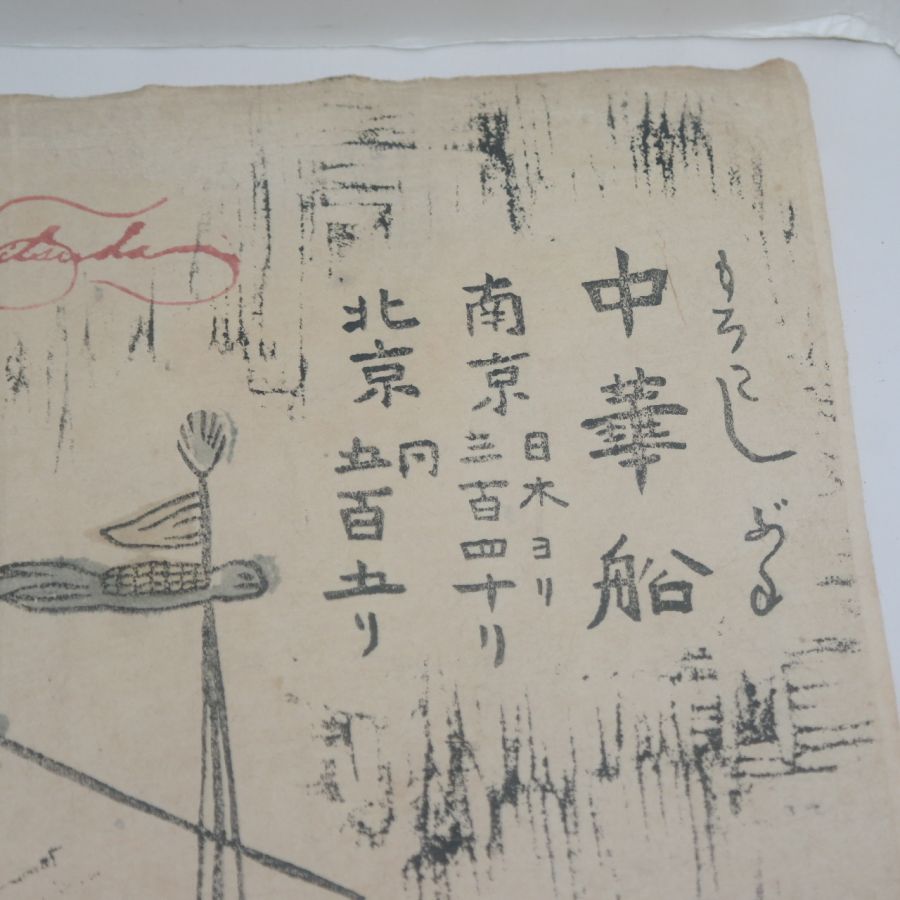 もろこし ぶね
中華船
日本ヨリ
南京 三百四十リ
北京 五百五リ